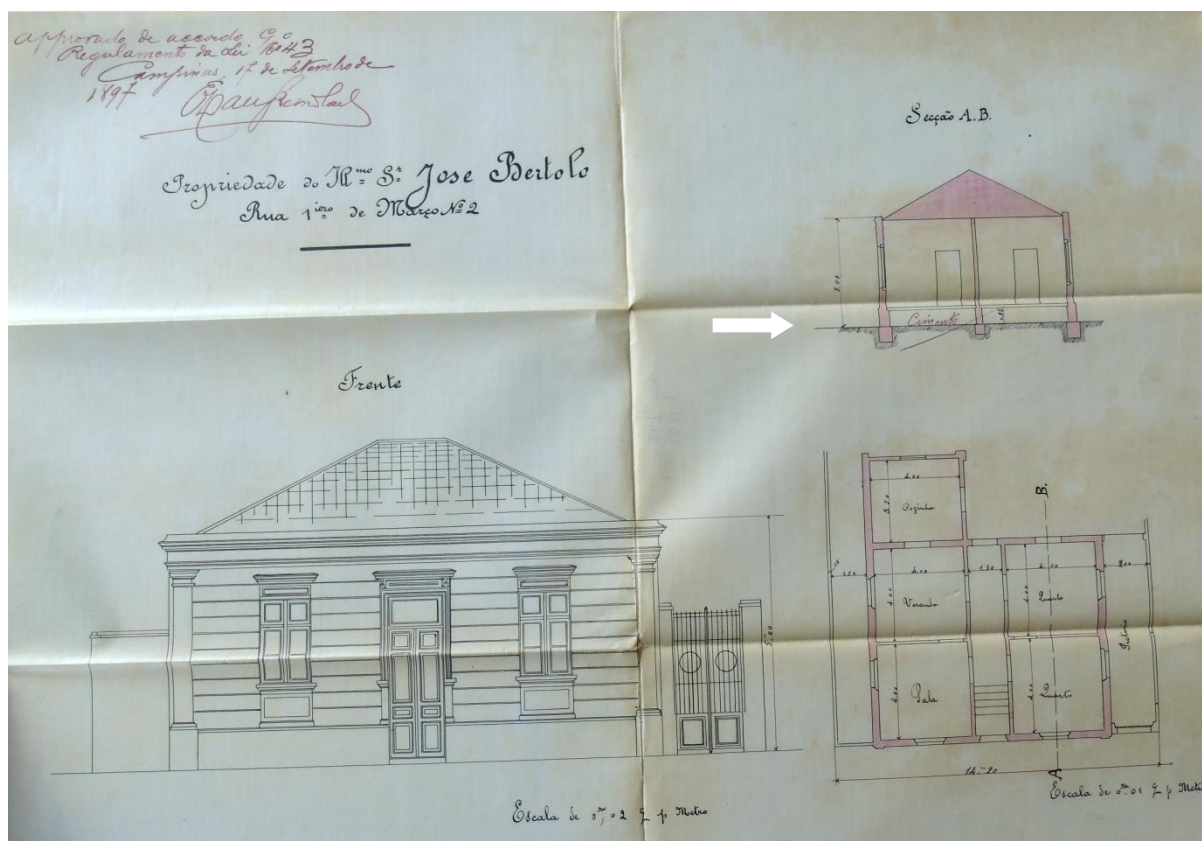 Approvado de accordo
Regulamento da Lei nº 43
Campinas, 17 de Setembro de
1897
Propriedade do Illmo Sr. Jose Bertolo
Rua 1iero de Março Nº 2
Secção A.B.
5.00
Cimento
Frente
5.m00
B.
4.00
3.50
Cozinha
1.50
4.00
1.30
4.00
2.00
4.00
Varanda
4.00
Quarto
4.00
Sala
4.00
Quarto
14.m20
A
Escala de 0,m02 p Metro
Escala de 0,m01 p Metro